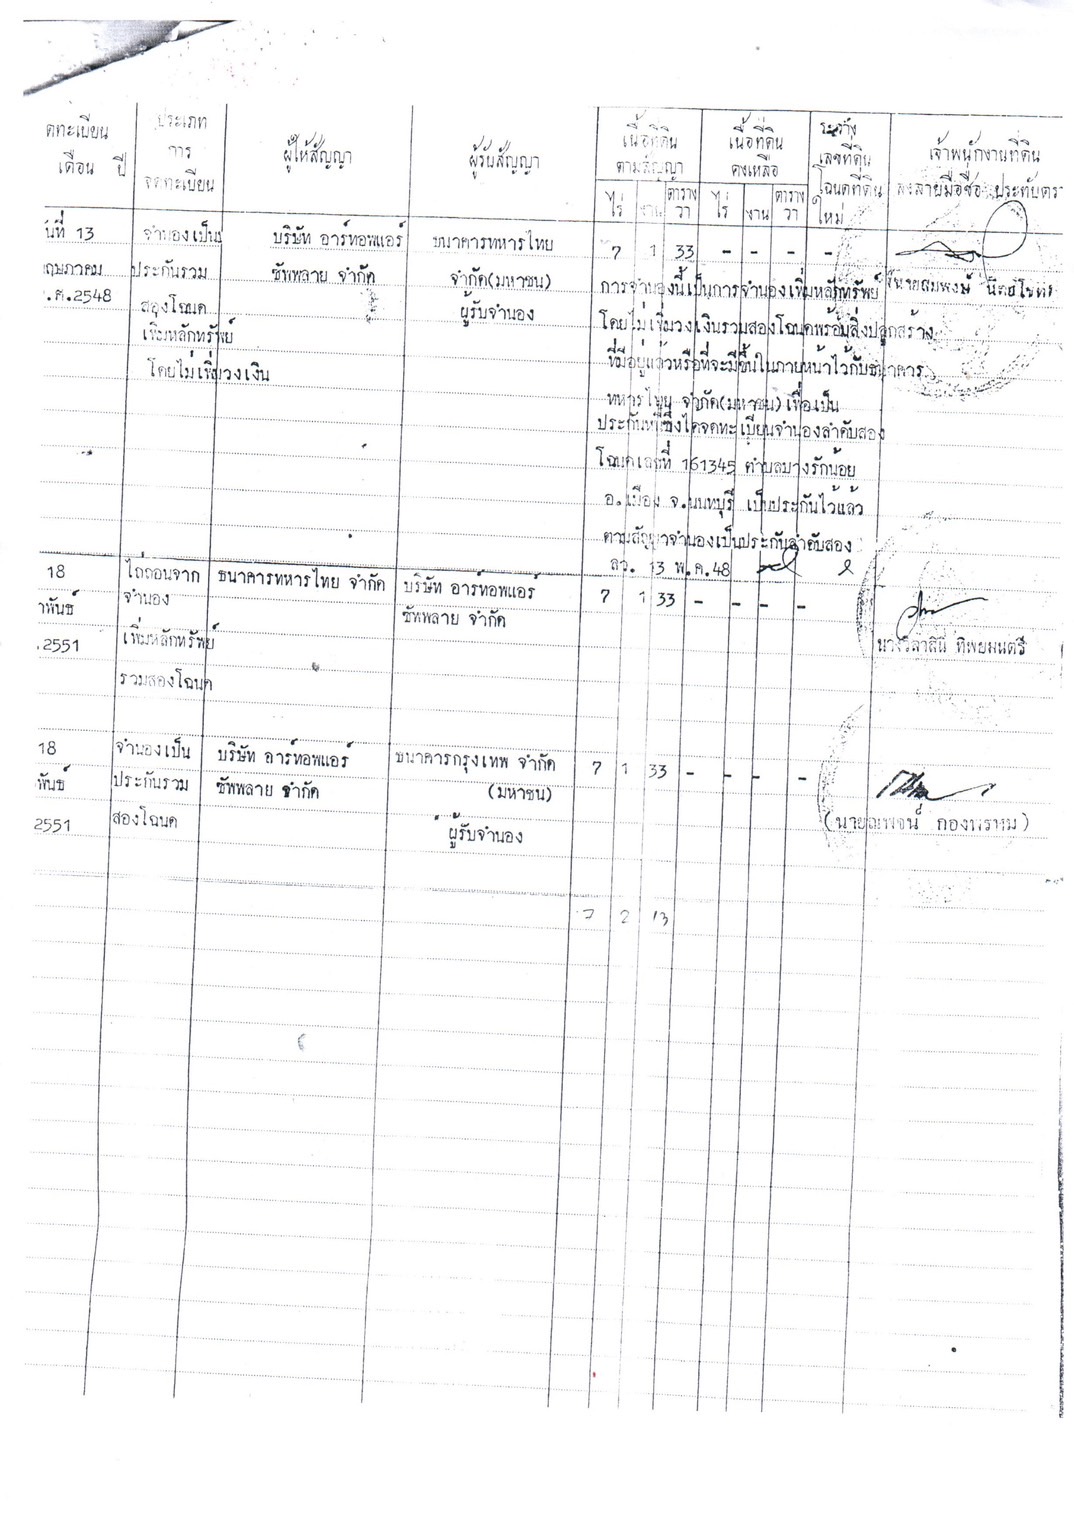 ดทะเบียน
เดือน ปี
ประเภท
การ
จดทะเบียน
ผู้ให้สัญญา
ผู้รับสัญญา
เนื้อที่ดิน
ตามสัญญา
ไร่ งาน ตารางวา
เนื้อที่ดิน
คงเหลือ
ไร่ งาน ตารางวา
ระวาง
เลขที่ดิน
โฉนดที่ดิน
ใหม่
เจ้าพนักงานที่ดิน
ลงลายมือชื่อ ประทับตรา
นที่ 13 จำนองเป็น บริษัท อาร์ทอพแอร์ ธนาคารทหารไทย 7 1 33 - - - -
ฤษภาคม ประกันรวม ซัพพลาย จำกัด จำกัด(มหาชน)
.ศ.2548 สองโฉนด ผู้รับจำนอง
เพิ่มหลักทรัพย์
โดยไม่เพิ่มวงเงิน
การจำนองนี้เป็นการจำนองเพิ่มหลักทรัพย์
โดยไม่เพิ่มวงเงินรวมสองโฉนดพร้อมสิ่งปลูกสร้าง
ที่มีอยู่แล้วหรือที่จะมีขึ้นในภายหน้าไว้กับธนาคาร
ทหารไทย จำกัด(มหาชน) เพื่อเป็น
ประกันหนี้ซึ่งได้จดทะเบียนจำนองลำดับสอง
โฉนดเลขที่ 161345 ตำบลบางรักน้อย
อ.เมือง จ.นนทบุรี เป็นประกันไว้แล้ว
ตามสัญญาจำนองเป็นประกันลำดับสอง
ลว. 13 พ.ค.48
นายสมพงษ์
18 ไถ่ถอนจาก ธนาคารทหารไทย จำกัด บริษัท อาร์ทอพแอร์ 7 1 33 - - - -
าพันธ์ จำนอง ซัพพลาย จำกัด
.2551 เพิ่มหลักทรัพย์ นางวิลาสินี ทิพยมนตรี
รวมสองโฉนด
18 จำนองเป็น บริษัท อาร์ทอพแอร์ ธนาคารกรุงเทพ จำกัด 7 1 33 - - - -
พันธ์ ประกันรวม ซัพพลาย จำกัด (มหาชน)
2551 สองโฉนด ผู้รับจำนอง
7 2 13